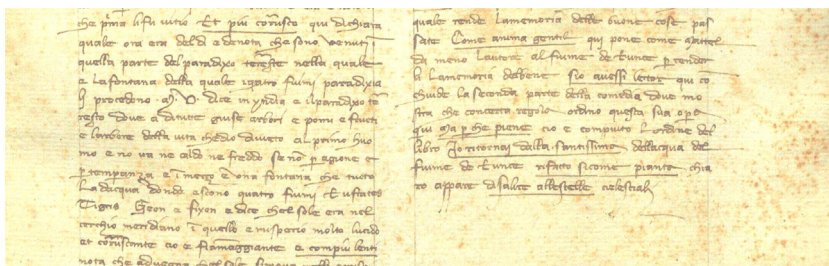 che prima li fu vitio Et piu corusco qui dichiara
quale ora era del di e denota che sono venuti i
quella parte del paradixo tereste nella quale
e la fontana della quale iquatro fiumi paradixia
li procedeno dice in yndia e il paradixo te
resto dove a di tute guise arbori e pomi e fructi
e larbore della vita che dio diveto al primo huo
mo e no va ne caldo ne freddo se no p agione e
p temperanza e i mezo e una fontana che tucto
la dacqua donde escono quatro fiumi Eufrates
Tigris Geon e fixon e dice chel sole era nel
cerchio meridiano i quello emisperio molto lucido
et coruscante cio e flameggiante e compiu lenti
nota che adveg chel sole
quale rende lamemoria delle buone cose pas
sate Come anima gentil qui pone come matel
da meno lautore al fiume de Eunoe p render
li lamemoria delbene Sio avessi letor qui co
chiude la seconda parte della comedia dove mo
stra che concerta regola ordino questa sua opa
qui Ma p che piene cio e computo lordine del
libro Io ritornai dalla santissima dellacqua del
fiume de Eunoe rifatto sicome piante chia
ro appare disalire allestelle cielestial